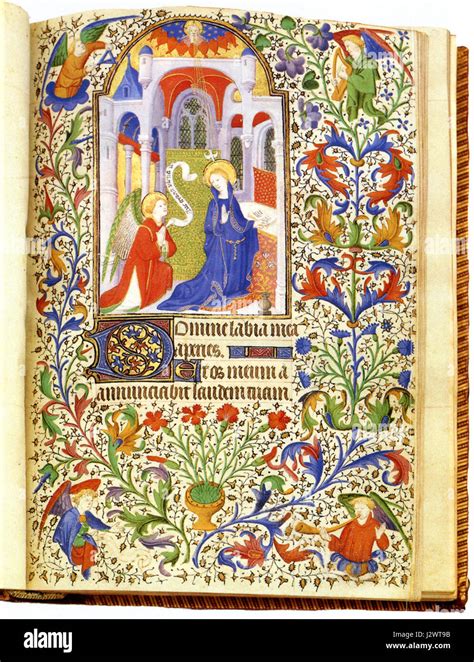 Domine labia mea
aperies. Et os meum a
annunciabit laudem tuam
alamy
Image ID: J2WT9B
www.alamy.com